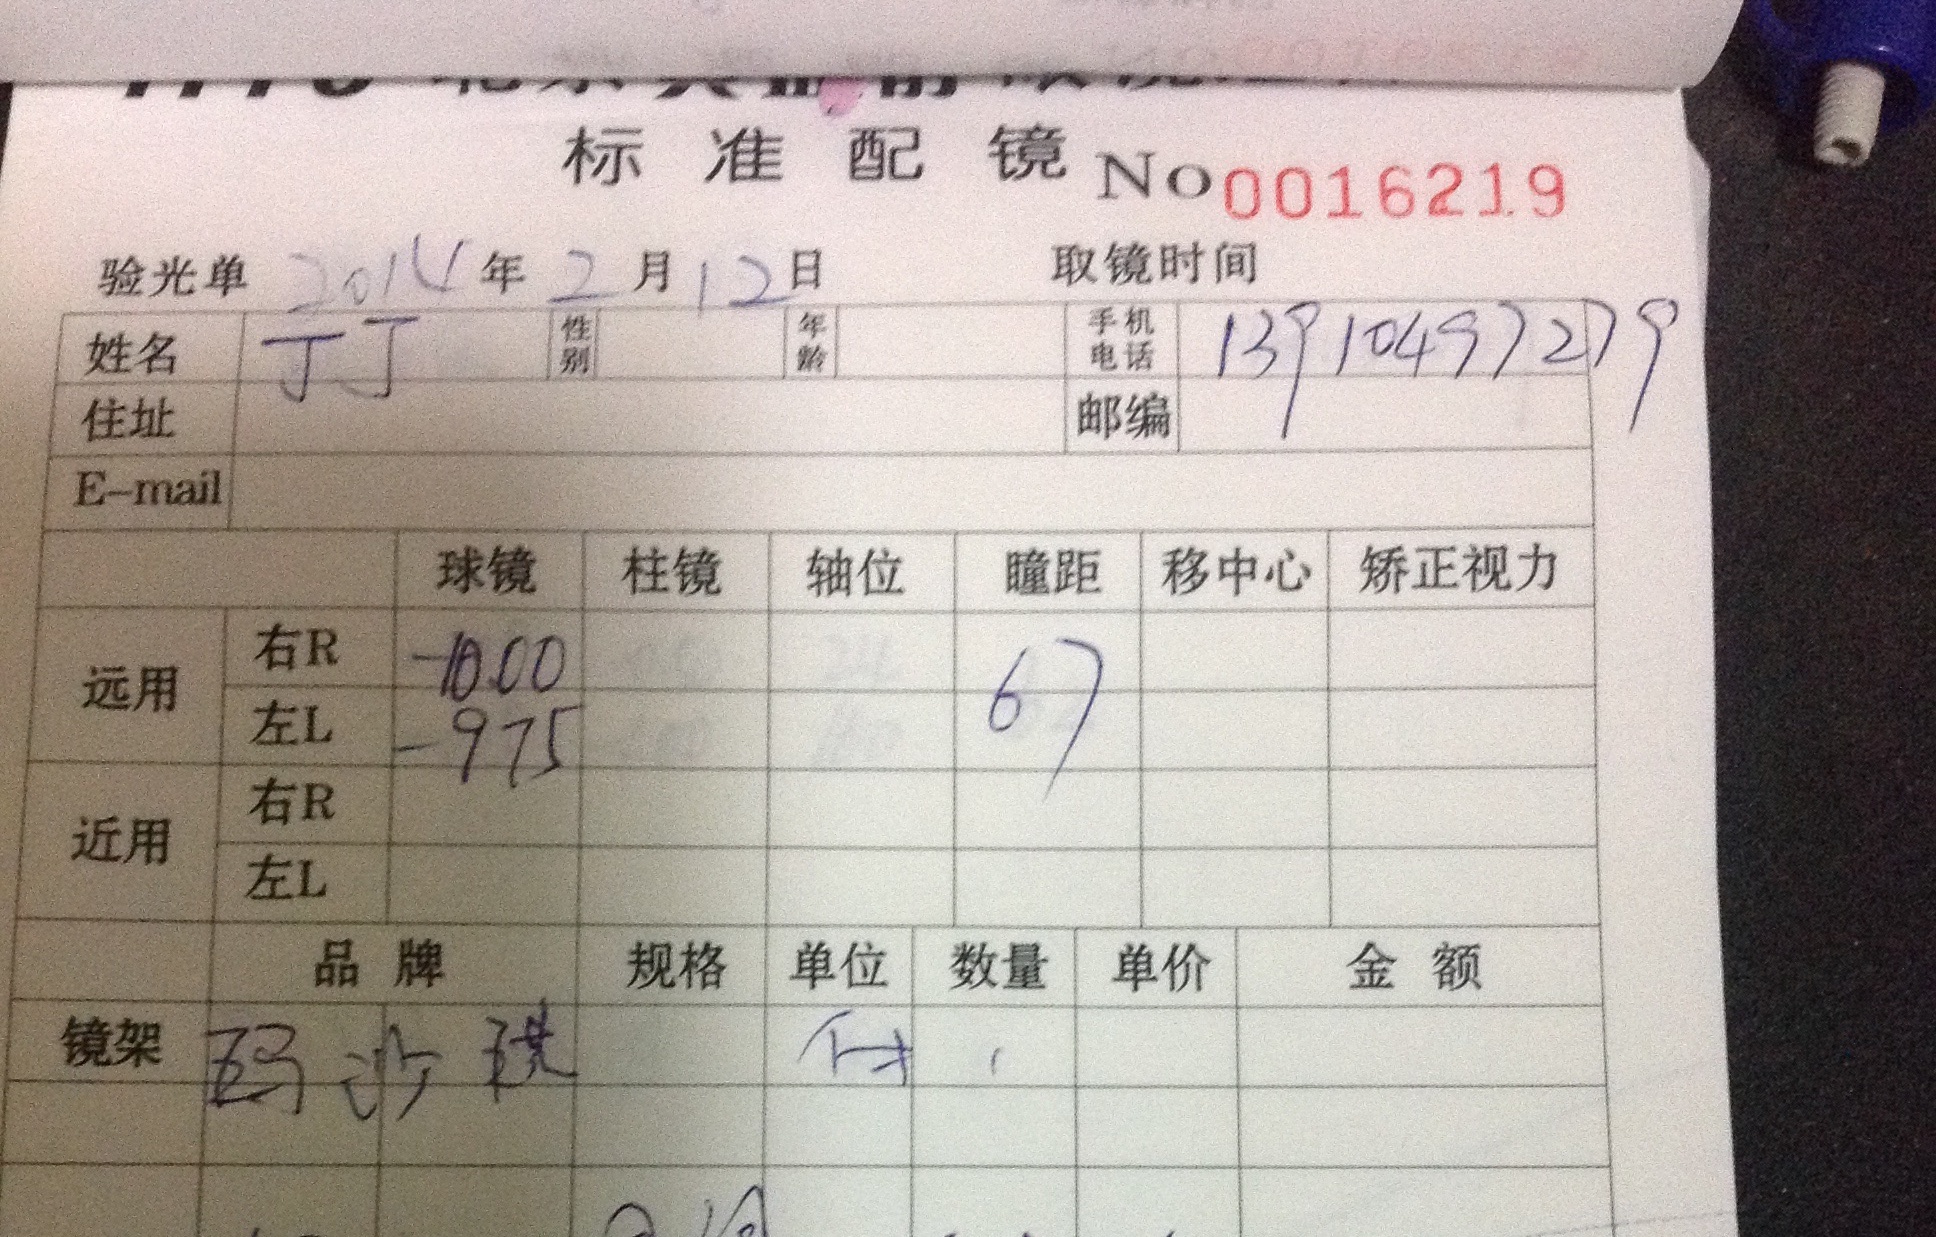 标准配镜 No 0016219
验光单 2014年2月12日 取镜时间
姓名 丁丁 性别 年龄 手机电话 13910497279
住址 邮编
E-mail
球镜 柱镜 轴位 瞳距 移中心 矫正视力
远用 右R -10.00 67
左L -975
近用 右R
左L
品牌 规格 单位 数量 单价 金额
镜架 玛沙琪 付 1